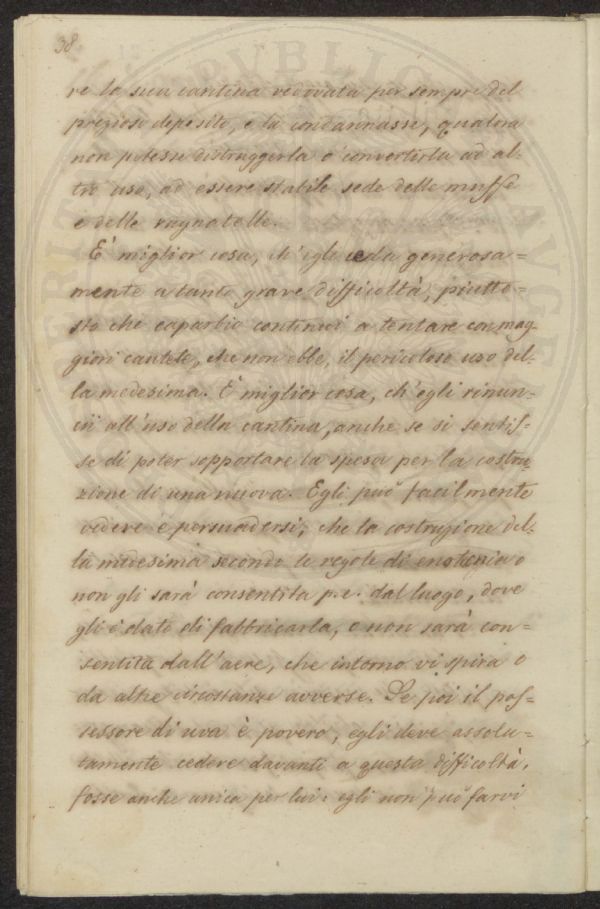 38
re la sua cantina vedovata per sempre del
prezioso deposito, e la condannasse, qualora
non potesse distruggerla o convertirla ad al-
tro uso, ad essere stabile sede delle muffe
e delle ragnatelle.
É miglior cosa, ch'egli ceda generosa=
mente a tanto grave difficoltà, piutto=
sto che caparbio continui a tentare con mag-
giori cautele, che non ebbe, il pericoloso uso del-
la medesima. É miglior cosa, ch'egli rinun-
ii all'uso della cantina, anche se si sentis-
se di poter sopportare la spesa per la costru-
zione di una nuova. Egli può facilmente
vedere e persuadersi, che la costruzione del-
la medesima secondo le regole di enotenia o
non gli sarà consentita p.e. dal luogo, dove
gli è dato di fabbricarla, o non sarà con=
sentita dall'aere, che intorno vi spira o
da altre circostanze avverse. Se poi il pos=
sessore di uva è povero, egli deve assolu=
tamente cedere davanti a questa difficoltà,
fosse anche unica per lui: egli non può farvi